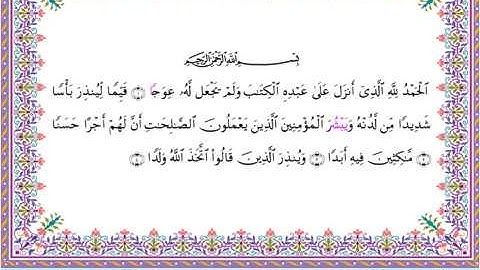 بِسْمِ اللَّهِ الرَّحْمَٰنِ الرَّحِيمِ
الْحَمْدُ لِلَّهِ الَّذِي أَنزَلَ عَلَىٰ عَبْدِهِ الْكِتَابَ وَلَمْ يَجْعَل لَّهُ عِوَجًا ۝ قَيِّمًا لِّيُنذِرَ بَأْسًا
شَدِيدًا مِّن لَّدُنْهُ وَيُبَشِّرَ الْمُؤْمِنِينَ الَّذِينَ يَعْمَلُونَ الصَّالِحَاتِ أَنَّ لَهُمْ أَجْرًا حَسَنًا
۝ مَّاكِثِينَ فِيهِ أَبَدًا ۝ وَيُنذِرَ الَّذِينَ قَالُوا اتَّخَذَ اللَّهُ وَلَدًا ۝